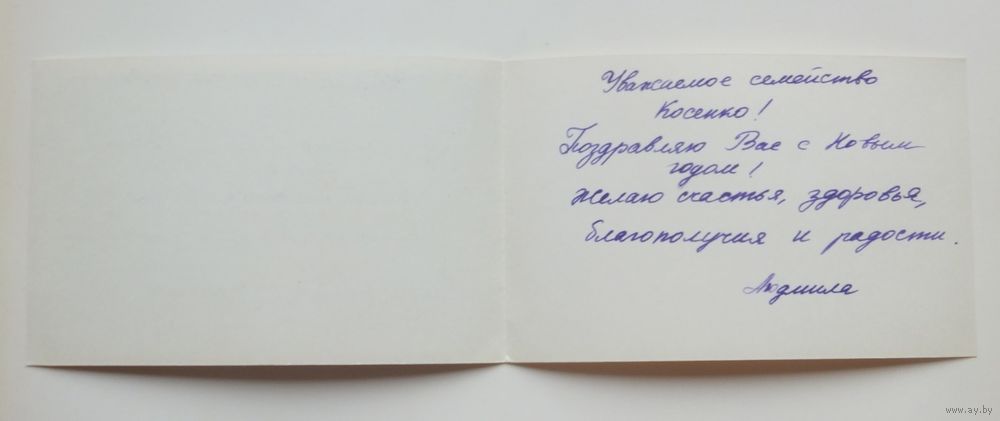 Уважаемое семейство
Косенко!
Поздравляю Вас с Новым
годом!
Желаю счастья, здоровья,
благополучия и радости.
Людмила
www.ay.by